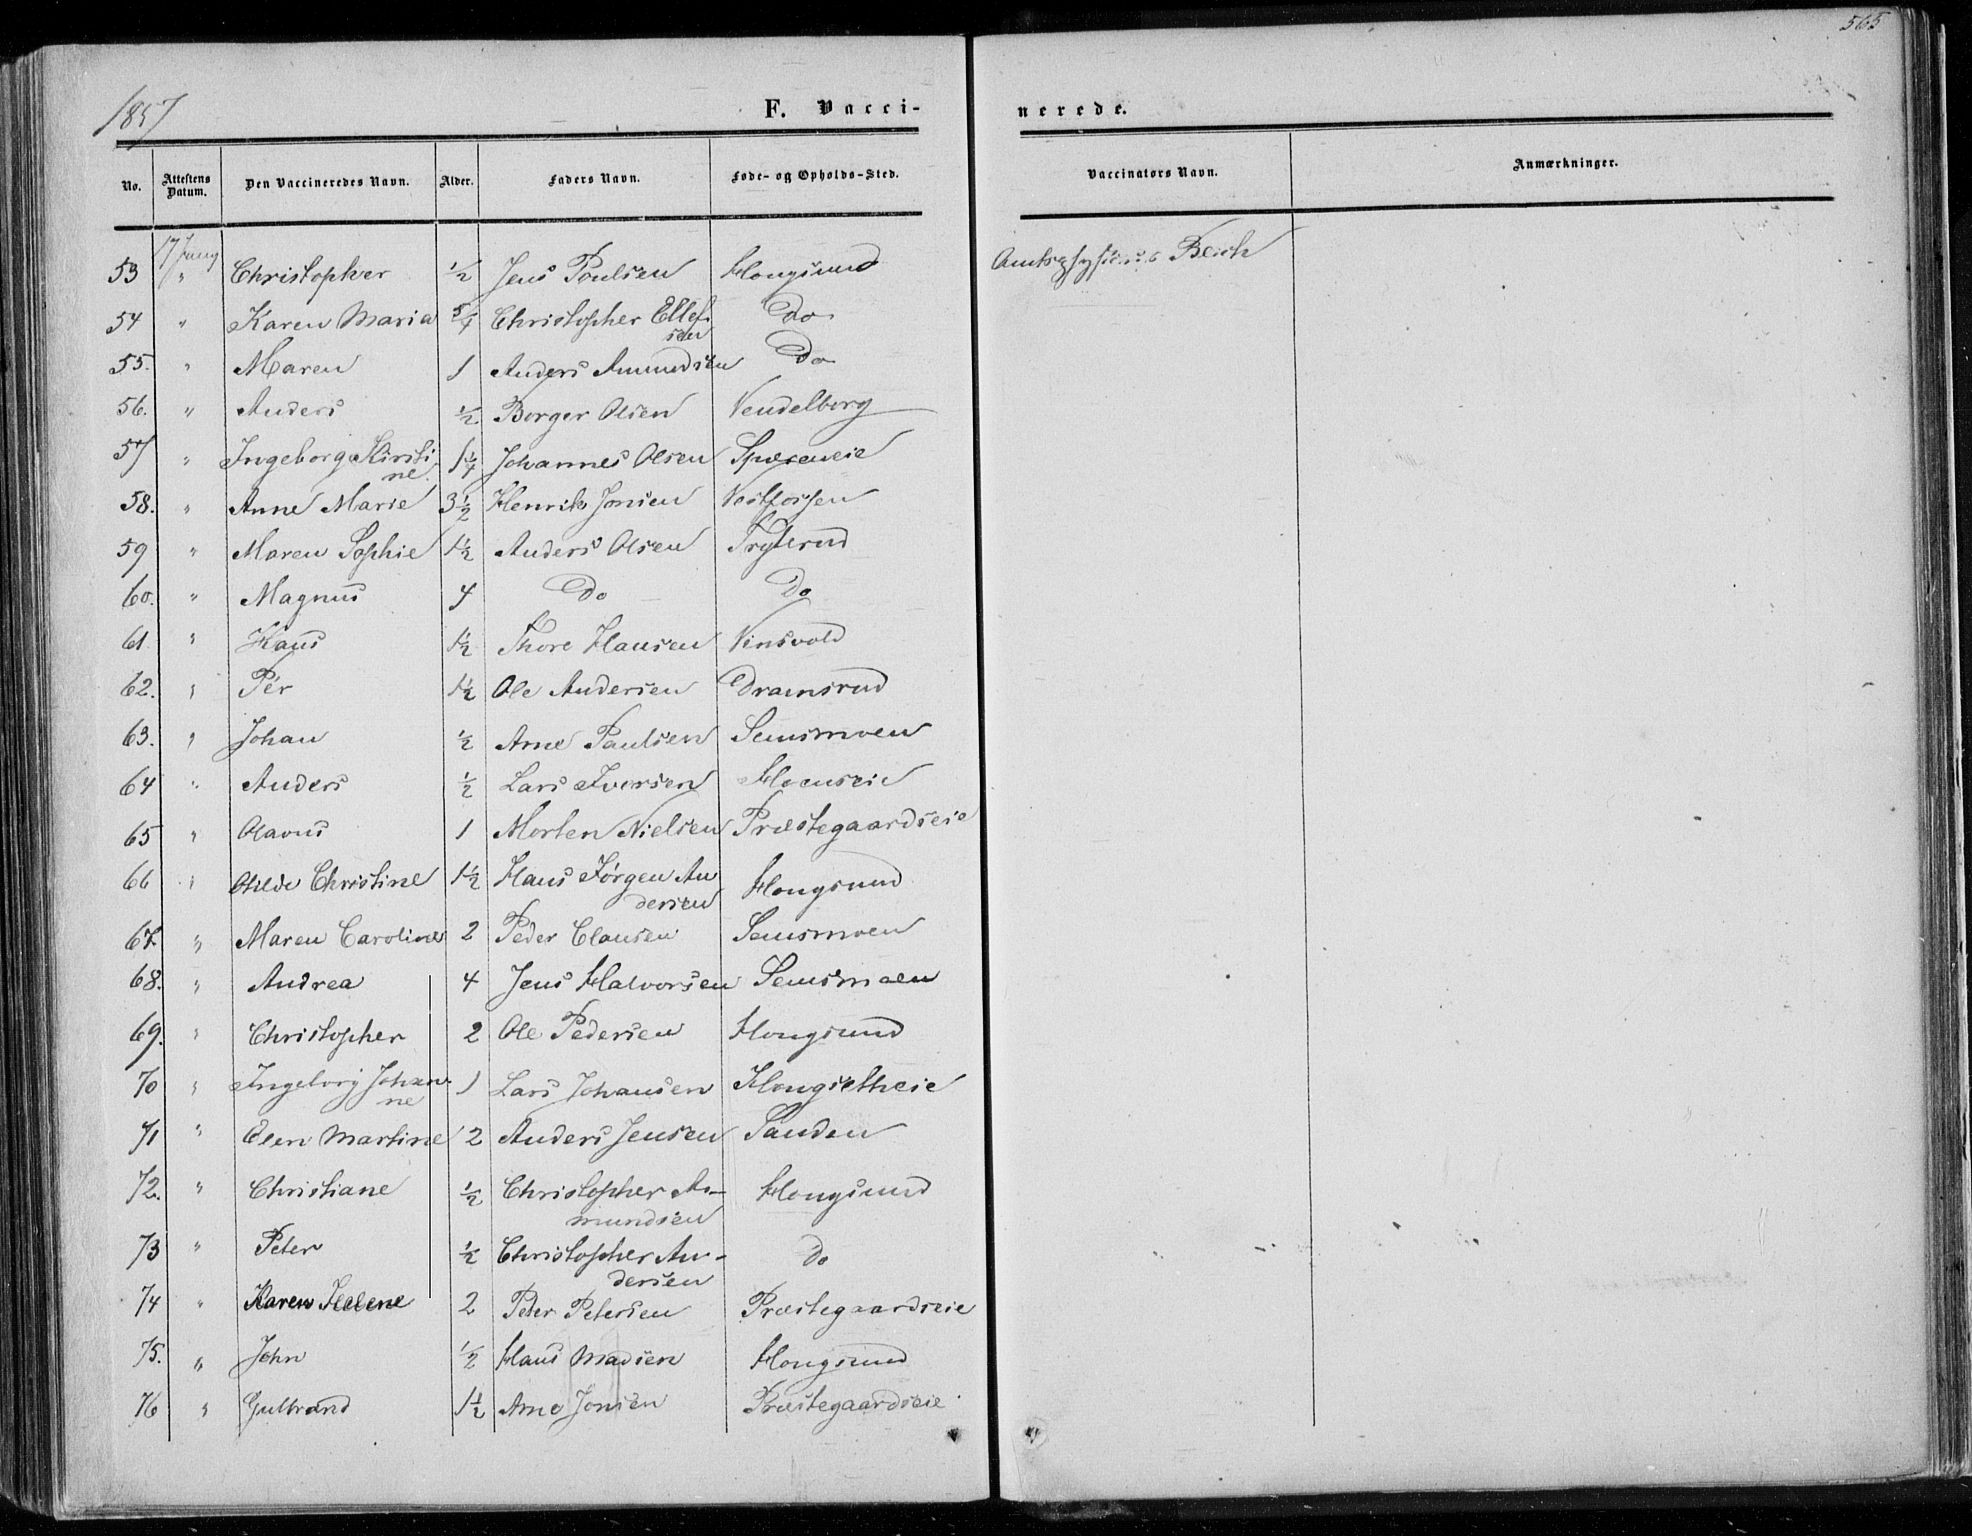 565
1857
F. Vacci-
nerede.
No. Attestens Datum. Den Vaccineredes Navn. Alder. Faders Navn. Føde- og Opholds-Sted. Vaccinators Navn. Anmærkninger.
17 Juny
53 " Christopher ½ Jens Poulsen Hougsund Amtsphysicus Beich
54 " Karen Maria 5/4 Christopher Ellef-
sen Do
55. " Maren 1 Anders Amundsen Do
56. " Anders ½ Borger Olsen Vendelborg
57 " Ingeborg Kirsti-
ne 1¼ Johannes Olsen
58. " Anne Marie 3½ Henrik Jonsen Vestfossen
59 " Maren Sophie 1½ Anders Olsen Tryterud
60. " Magnus 4 Do Do
61 " Hans 1½ Thore Hansen Vinsvold
62. " Per 1½ Ole Andersen Dramsrud
63. " Johan ½ Arne Paulsen Semsmoen
64 " Anders ½ Lars Iversen Hoenseie
65 " Olavus 1 Morten Nielsen Præstegaardseie
66 " Otilde Christine 1½ Hans Jørgen An
dersen Hougsund
67. " Maren Caroline 2 Peder Clausen Semsmoen
68. " Andrea 4 Jens Halvorsen Semsmoen
69. " Christopher 2 Ole Pedersen Hougsund
70 " Ingeborg Johan-
ne 1 Lars Johansen Hougsetheie
71 " Elen Martine 2 Anders Jensen Sanden
72. " Christiane ½ Christopher A-
mundsen Hougsund
73 " Peter ½ Christopher An-
dersen Do
74 " Karen Helene 2 Peter Petersen Præstegaardseie
75. " John ½ Hans Madsen Hougsund
76 " Gulbrand 1½ Arne Jonsen Præstegaardseie